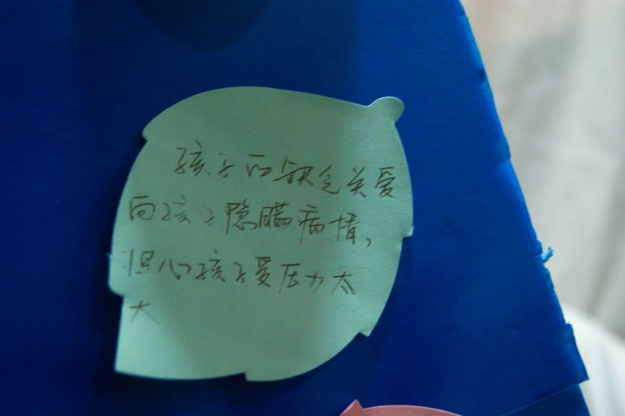 孩子的缺乏关爱
向孩子隐瞒病情,
担心孩子受压力太
大